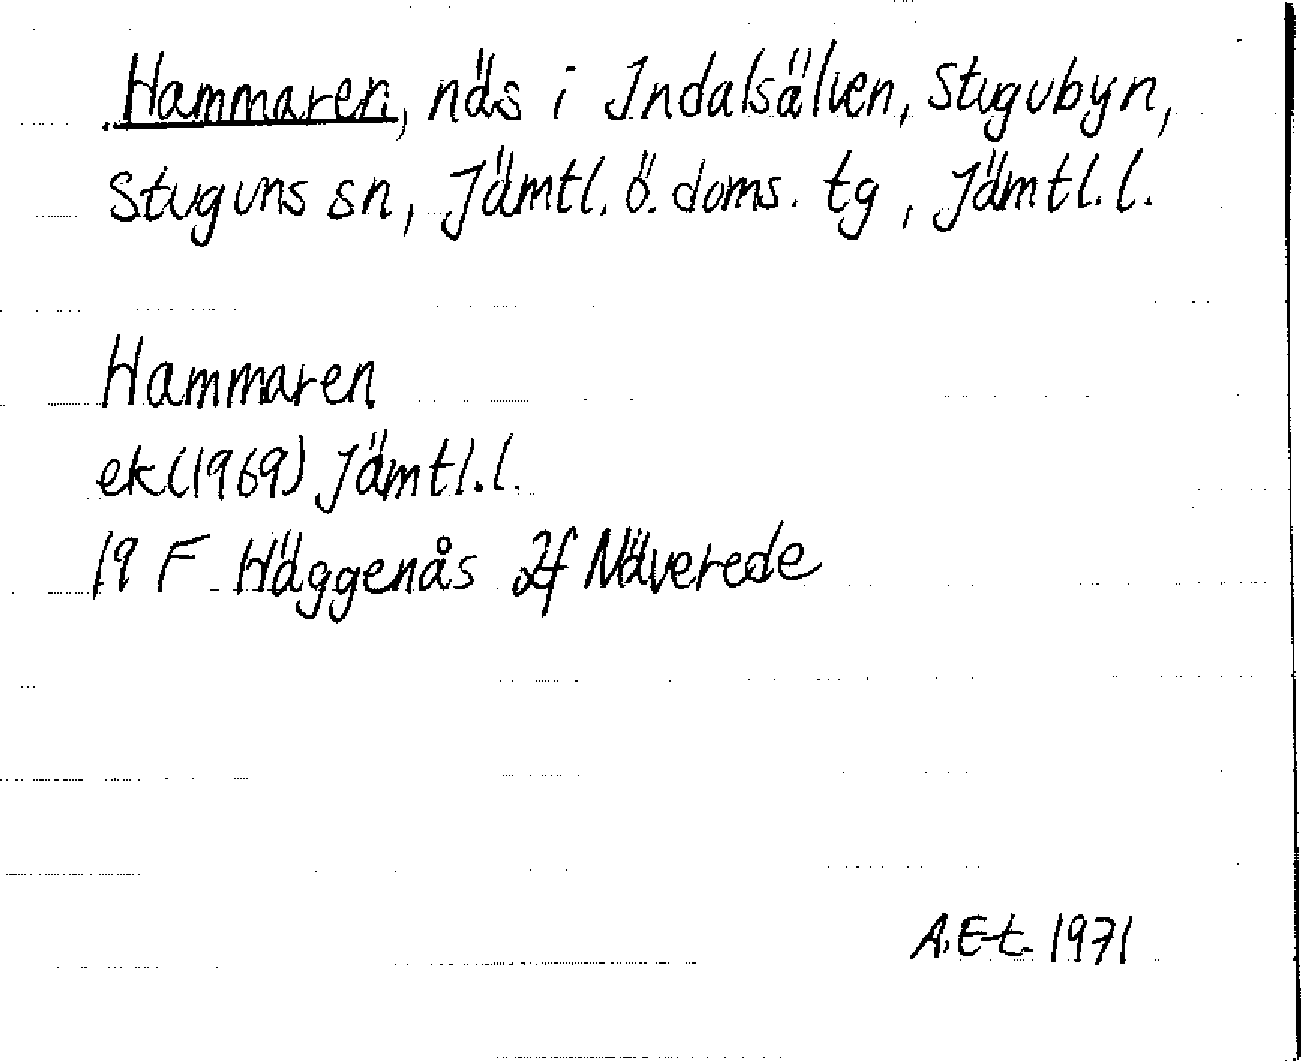 Hammaren, näs i Indalsälven, Stugubyn,
Stuguns sn, Jämtl. ö. doms. tg, Jämtl.l.
Hammaren
ek(1969) Jämtl.l.
19 F Häggenås 2f Näverede
A.E-t. 1971